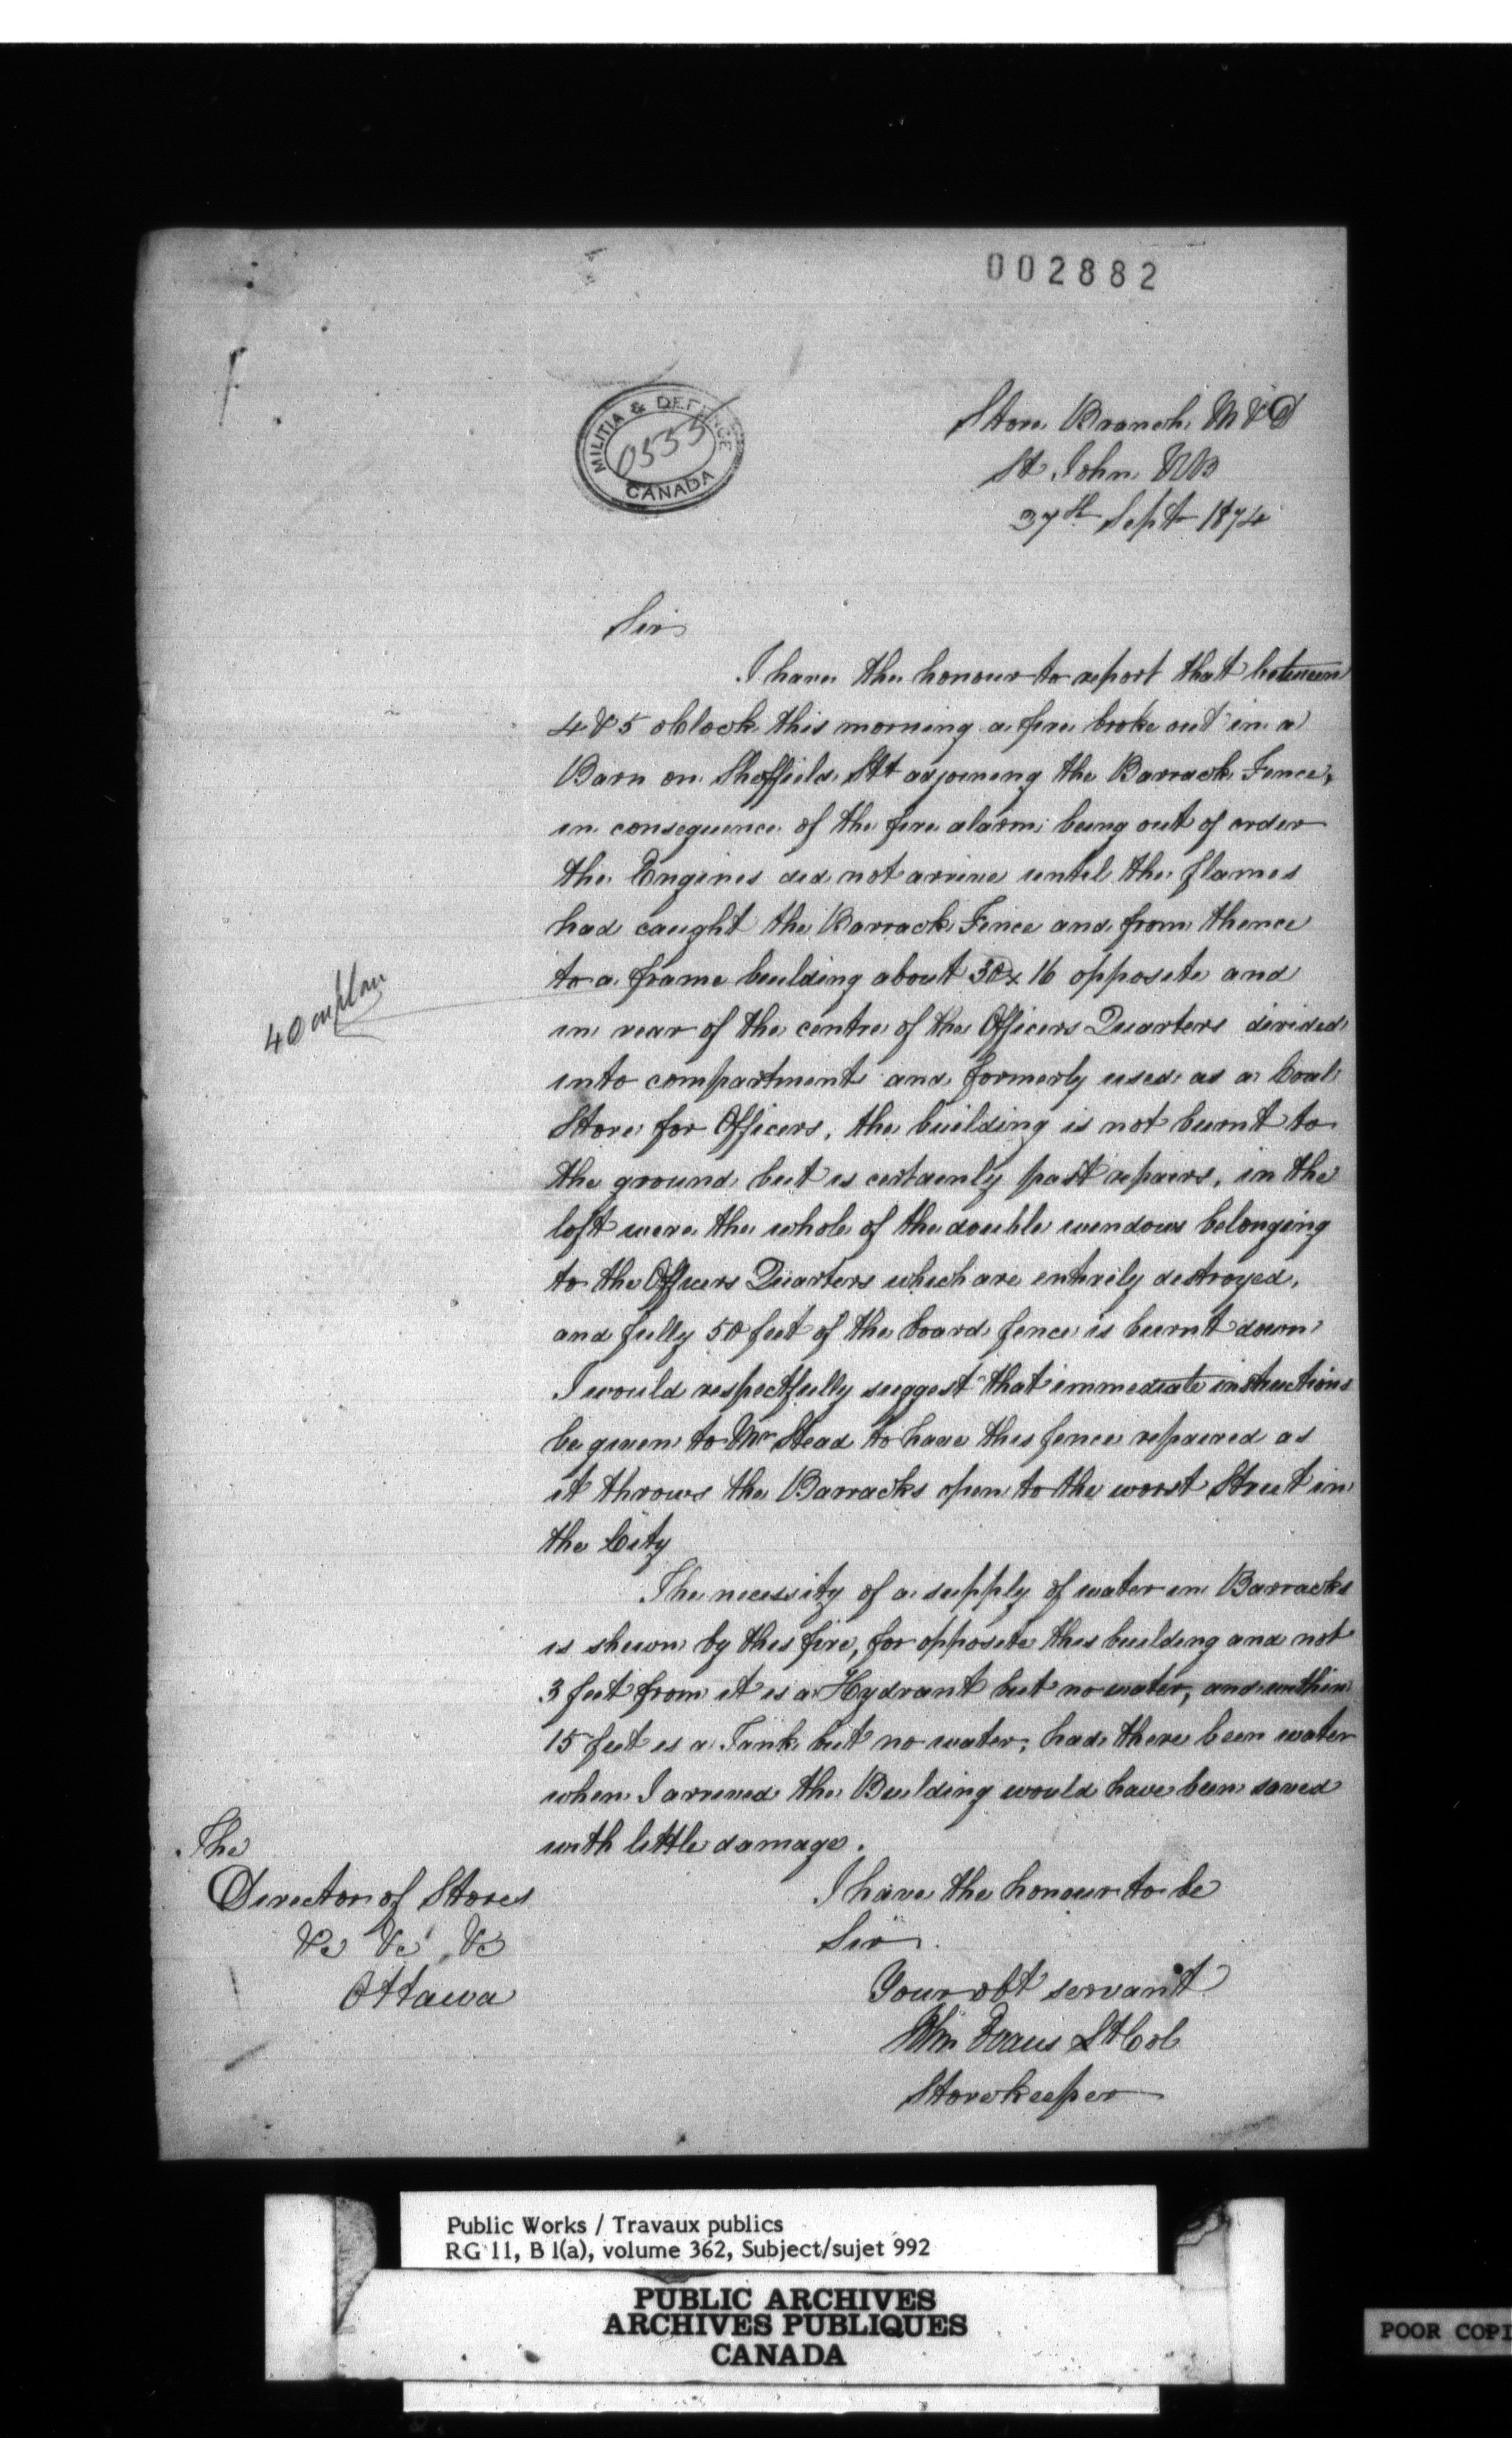 002882
MILITIA & DEFENCE
0555
CANADA
Store Branch M & D
St John NB
27th Sept 1874
Sir
I have the honour to report that between
4 & 5 oClock this morning a fire broke out in a
Barn on Sheffield Stt adjoining the Barrack Fence,
in consequence of the fire alarm being out of order
the Engines did not arrive until the flames
had caught the Barrack Fence and from thence
to a frame building about 30 x 16 opposite and
40 on plan
in rear of the centre of the Officers Quarters divided
into compartment and formerly used as a Coal
Store for Officers, the building is not burnt to
the ground but is certainly past repairs, in the
loft were the whole of the double windows belonging
to the Officers Quarters which are entirely destroyed,
and fully 50 feet of the board fence is burnt down
I would respectfully suggest that immediate instructions
be given to Mr Stead to have this fence repaired as
it throws the Barracks open to the worst Street in
the City
The necessity of a supply of water in Barracks
is shewn by this fire, for opposite this building and not
3 feet from it is a Hydrant but no water, and within
15 feet is a Tank but no water, had there been water
when I arrived the Building would have been saved
with little damage.
The
Director of Stores
&c &c &c
Ottawa
I have the honour to be
Sir
Your obt servant
Storekeeper
Public Works / Travaux publics
RG 11, B 1(a), volume 362, Subject/sujet 992
PUBLIC ARCHIVES
ARCHIVES PUBLIQUES
CANADA
POOR COPI